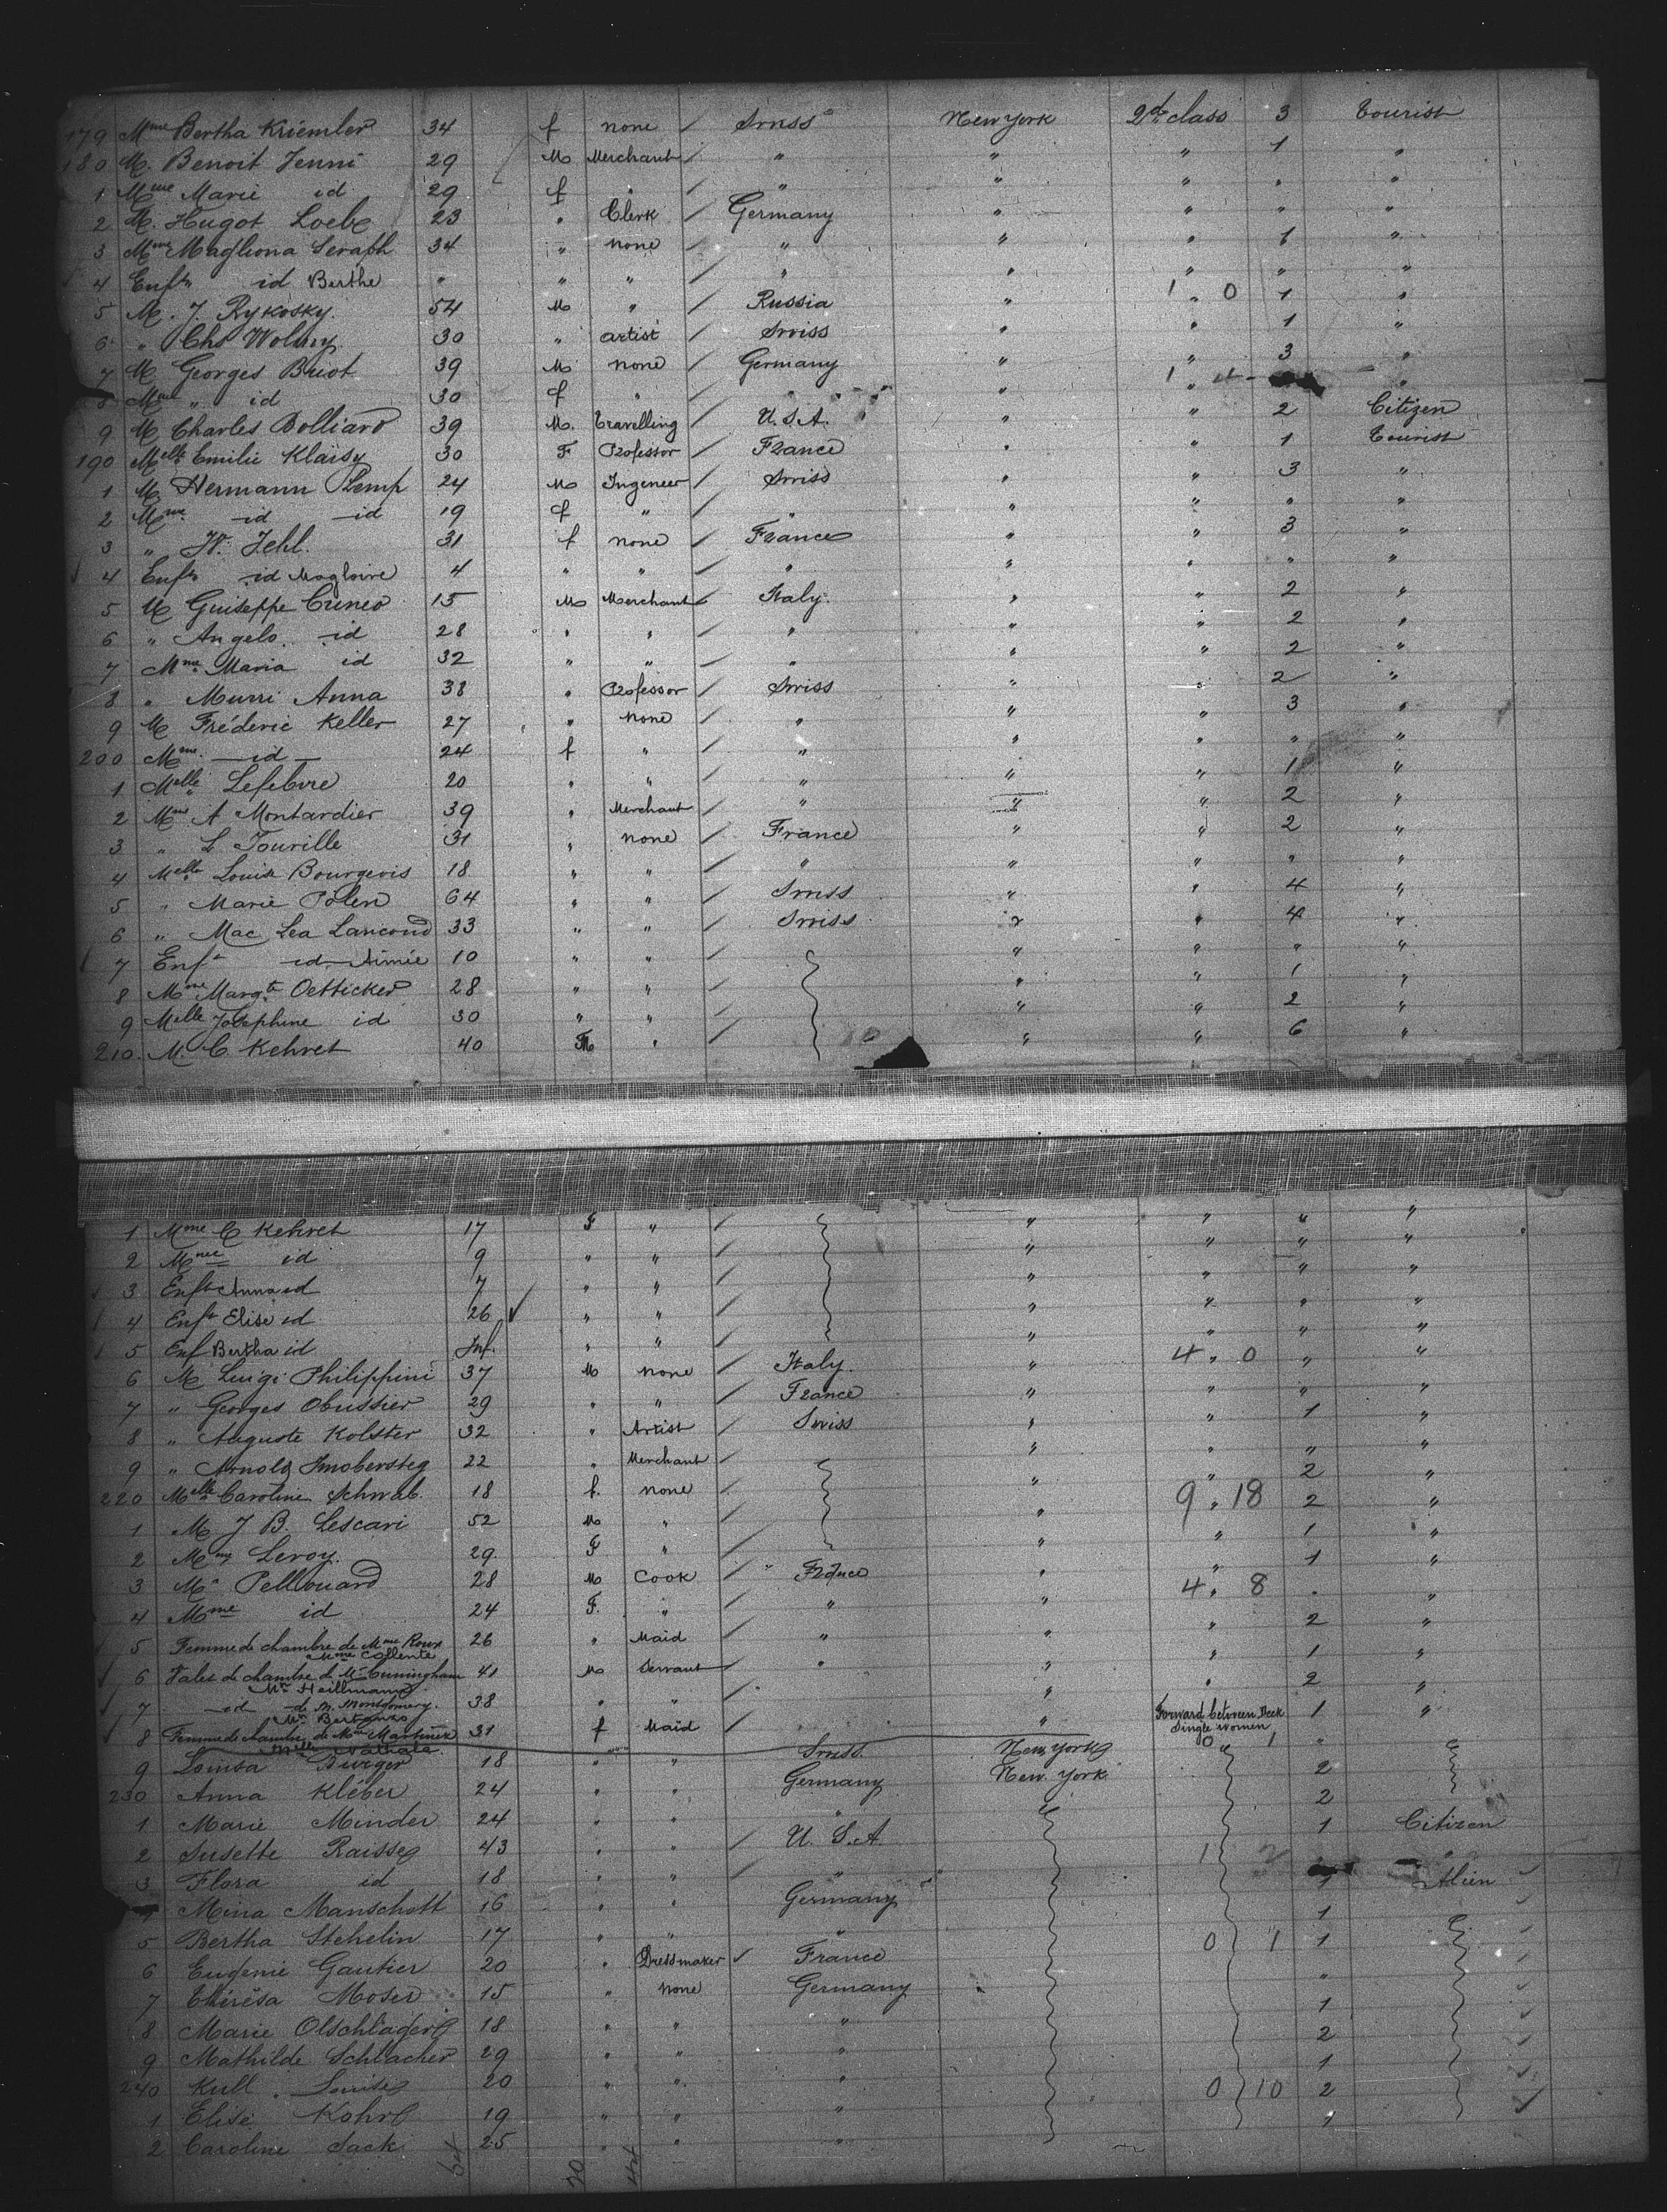 179 Mme Bertha Kriemler 34 f none / Swiss New York 2d class 3 Tourist
180 M. Benoit Jenni 29 M Merchant / " " " 1 "
1 Mme Marie id 29 f " / " " " " "
2 M. Hugot Loebe 23 " Clerk / Germany " " " "
3 Mme Magliona Seraph 34 " none / " " " 1 "
4 Enfts id Berthe " " " / " " " " "
5 M. J. Rykosky 54 M " / Russia " 1 " 0 1 "
6 " Chs Wolney 30 " artist / Swiss " " 1 "
7 M Georges Buot 39 M none / Germany " " 3 "
8 Mme " id 30 f " / " " 1 " 4 "
9 M Charles Bolliard 39 M. travelling / U.S.A. " " 2 Citizen
190 Melle Emilie Klaisy 30 F Professor / France " " 1 Tourist
1 M. Hermann Lemp 24 M Ingeneer / Swiss " " 3 "
2 Mme id id 19 f " / " " " " "
3 " W. Jehl. 31 f none / France " " 3 "
4 Enfts id Magloire 4 " " / " " " " "
5 M Guiseppe Cuneo 15 M Merchant / Italy " " 2 "
6 " Angelo id 28 " " / " " " 2 "
7 Mme Maria id 32 " " / " " " 2 "
8 " Murri Anna 38 " Professor / Swiss " " 2 "
9 M Fréderic Keller 27 " none / " " " 3 "
200 Mme id 24 f " / " " " " "
1 Melle Lefebvre 20 " " / " " " 1 "
2 Mme A Montardier 39 " Merchant / " " " 2 "
3 " L Tourille 31 " none / France " " 2 "
4 Melle Louise Bourgeois 18 " " / " " " " "
5 " Marie Polen 64 " " / Swiss " " 4 "
6 " Mac Lea Lancoud 33 " " / Swiss " " 4 "
7 Enft id Aimée 10 " " / " " " "
8 Mme Margte Oetticker 28 " " / " " 1 "
9 Melle Josephine id 30 " " / " " 2 "
210. M. C Kehret 40 M " / " " 6 "
1 Mme C Kehret 17 F " / " " " "
2 Mme id 9 " " / " " " "
3 Enft Anna id 7 " " / " " " "
4 Enft Elise id 26 " " / " " " "
5 Enf Bertha id Inf. " " / " " " "
6 M Luigi Philippini 37 M none / Italy. " 4 " 0 " "
7 " Georges Obussier 29 " " / France " " " "
8 " Auguste Kolster 32 " Artist / Swiss " " 1 "
9 " Arnold Imobersteg 22 " Merchant / " " " "
220 Melle Caroline Schwab. 18 f. none / " " 2 "
1 M J B. Lescari 52 M " / " 9 " 18 2 "
2 Mme Leroy. 29. F " / " " 1 "
3 M. Pellouard 28 M Cook / France " " 1 "
4 Mme id 24 F. " / " " 4 " 8 " "
5 Femme de chambre de Mme Roux 26 " Maid / " " " 2 "
Mme Collente
6 Valet de chambre de Mr Cuningham 41 M Servant / " " " 1 "
Mr Heillmann
7 id de M. Montgomery. 38 " " / " " " 2 "
Mr Bertonzo
8 Femme de chambre de Mme Martinez 31 f Maid / " Forward between Deck 1 "
Melle Nathala Single women
9 Louisa Burger 18 " " Swiss New York 0 " 1 "
230 Anna Kléber 24 " " Germany New York 2
1 Marie Minder 24 " " " 2
2 Susette Raisseg 43 " " / U. S. A. 1 Citizen
3 Flora id 18 " " / " 1 2 "
4 Mina Manschott 16 " " Germany 1 Alien
5 Bertha Stehelin 17 " " " 1
6 Eugenie Gautier 20 " Dressmaker / France 0 1 1
7 Thirésa Moser 15 " none Germany "
8 Marie Olschlager 18 " " " 1
9 Mathilde Schlacher 29 " " " 2
240 Kull Louise 20 " " " 1
1 Elise Kohr 19 " " " 0 10 2
2 Caroline Sack 25 " " " 1
64 20 44